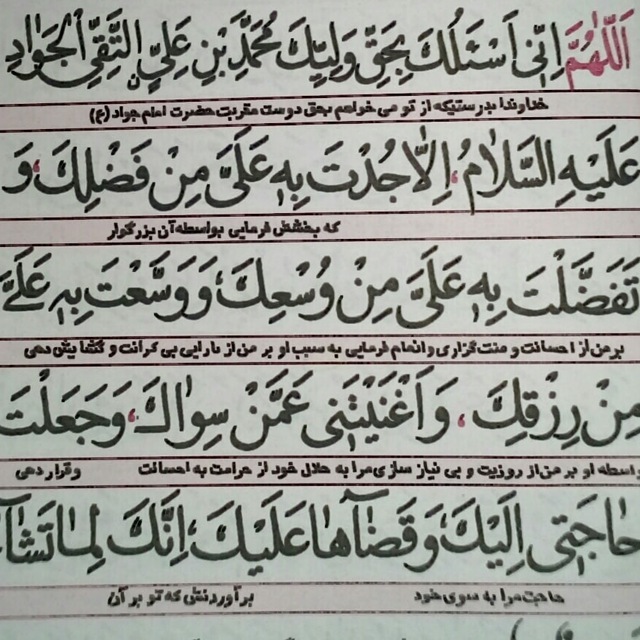 اَللّٰهُمَّ اِنّى اَسْئَلُكَ بِحَقِّ وَلِيِّكَ مُحَمَّدِ بْنِ عَلِيٍّ التَّقِيِّ الْجَوَادِ
خداوندا بدرستیکه از تو می خواهم بحق دوست مقربت حضرت امام جواد (ع)
عَلَيْهِ السَّلامُ، اِلّا جُدْتَ بِهِ عَلَىَّ مِنْ فَضْلِكَ، وَ
که بخشش فرمایی بواسطه آن بزرگوار
تَفَضَّلْتَ بِهِ عَلَىَّ مِنْ وُسْعِكَ، وَ وَسَّعْتَ بِهِ عَلَىَّ
بر من از احسانت و منت گزاری و انعام فرمایی به سبب او بر من از دارایی بی کرانت و گشایش دهی
مِنْ رِزْقِكَ، وَ اَغْنَيْتَنى عَمَّنْ سِواكَ، وَ جَعَلْتَ
واسطه او بر من از روزیت و بی نیاز سازی مرا به حلال خود از حرامت به احسانت وقرار دهی
حاجَتى اِلَيْكَ، وَ قَضآاَها عَلَيْكَ، اِنَّكَ لِما تَشآءُ
حاجت مرا به سوی خود برآوردنش که تو بر آن